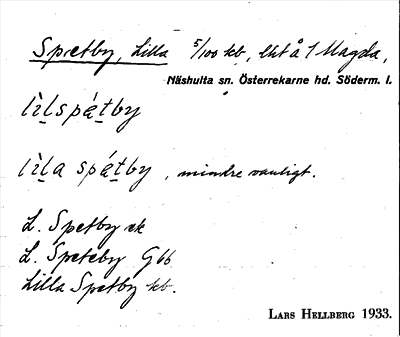 Spetby, Lilla 5/100 kb, lht å 1 Magda,
Näshulta sn. Österrekarne hd. Söderm. l.
lìlspá̱tby
lìla spá̱tby, mindre vanligt.
L. Spetby ek
L. Speteby G66
Lilla Spetby kb.
LARS HELLBERG 1933.